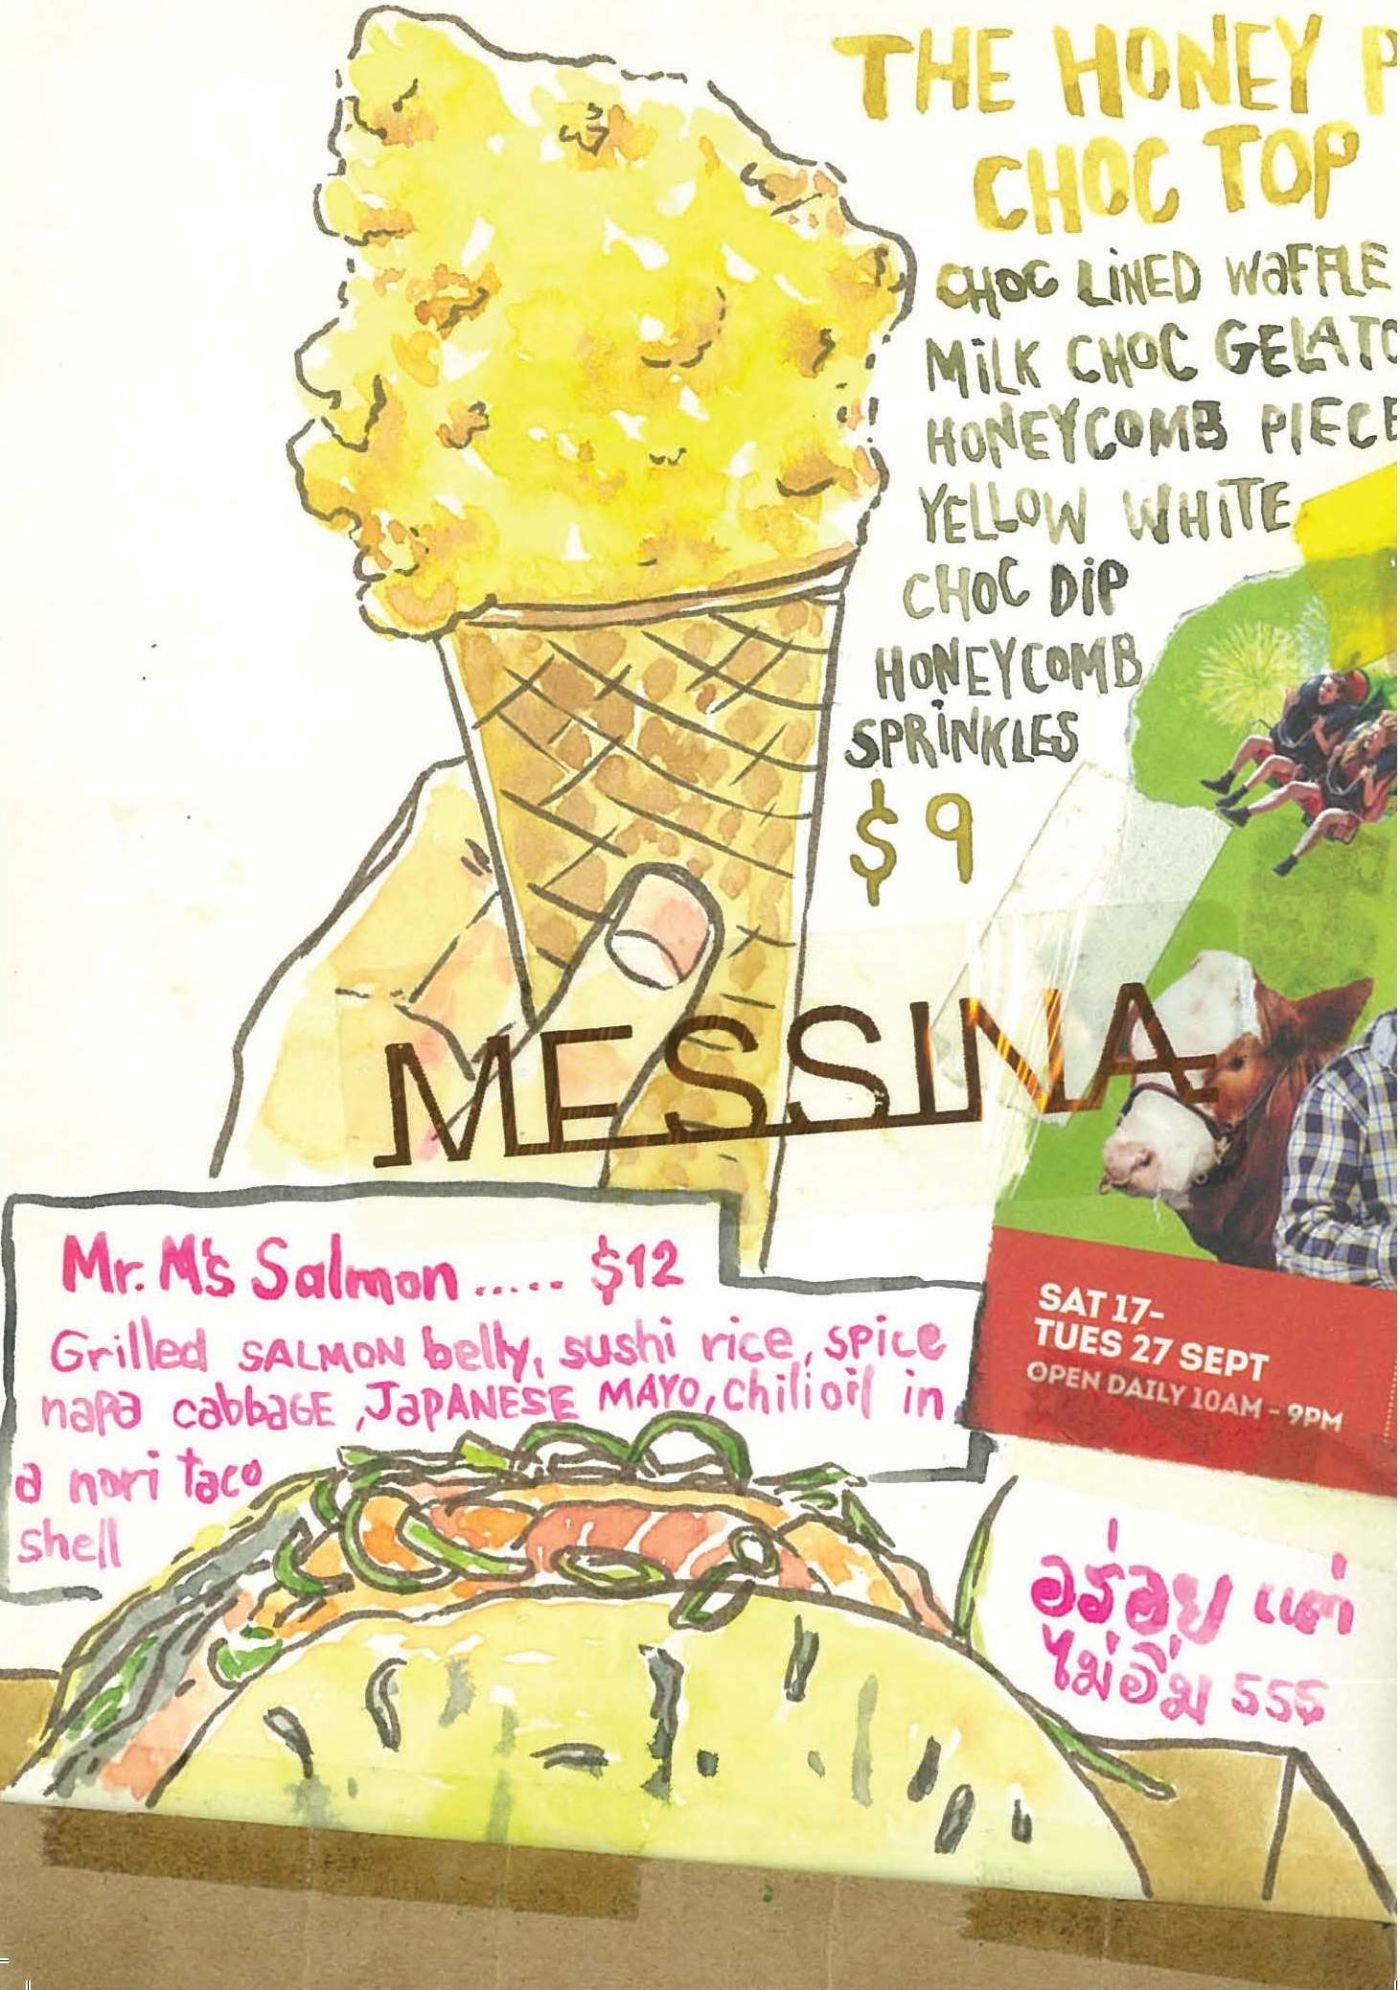 THE HONEY P
CHOC TOP
CHOC LINED WAFFLE
MILK CHOC GELATO
HONEYCOMB PIECE
YELLOW WHITE
CHOC DIP
HONEYCOMB
SPRINKLES
$9
MESSINA
SAT 17-
TUES 27 SEPT
OPEN DAILY 10AM - 9PM
Mr. M's Salmon ..... $12
Grilled SALMON belly, sushi rice, spice
napa cabbaGE, JaPANESE MAYO, chili oil in
a nori taco
shell
อร่อย แต่
ไม่อิ่ม 555